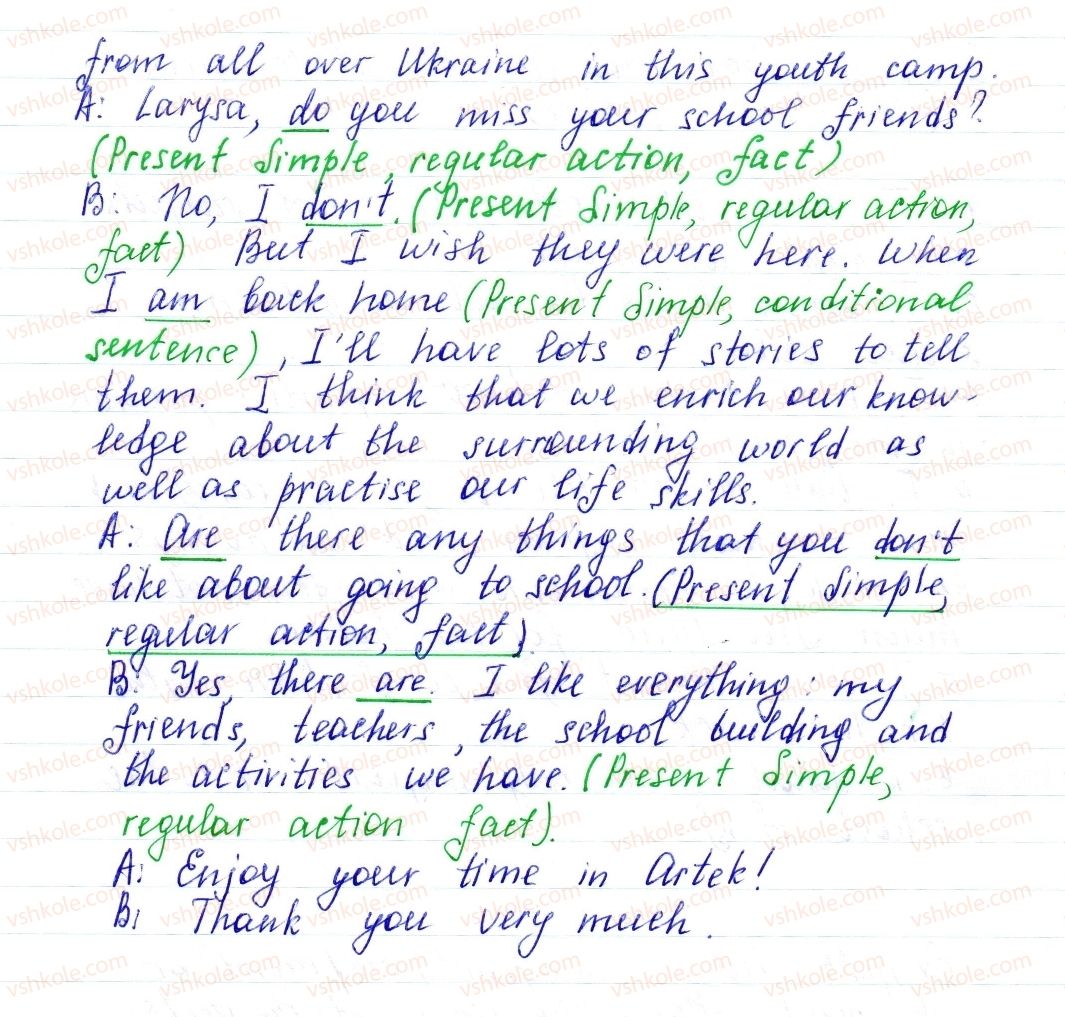 from all over Ukraine in this youth camp.
A: Larysa, do you miss your school friends?
(Present Simple, regular action, fact)
B: No, I don't. (Present Simple, regular action,
fact) But I wish they were here. When
I am back home (Present Simple, conditional
sentence), I'll have lots of stories to tell
them. I think that we enrich our know-
ledge about the surrounding world as
well as practise our life skills.
A: Are there any things that you don't
like about going to school. (Present Simple,
regular action, fact)
B: Yes, there are. I like everything: my
friends, teachers, the school building and
the activities we have. (Present Simple,
regular action fact).
A: Enjoy your time in Artek!
B: Thank you very much.